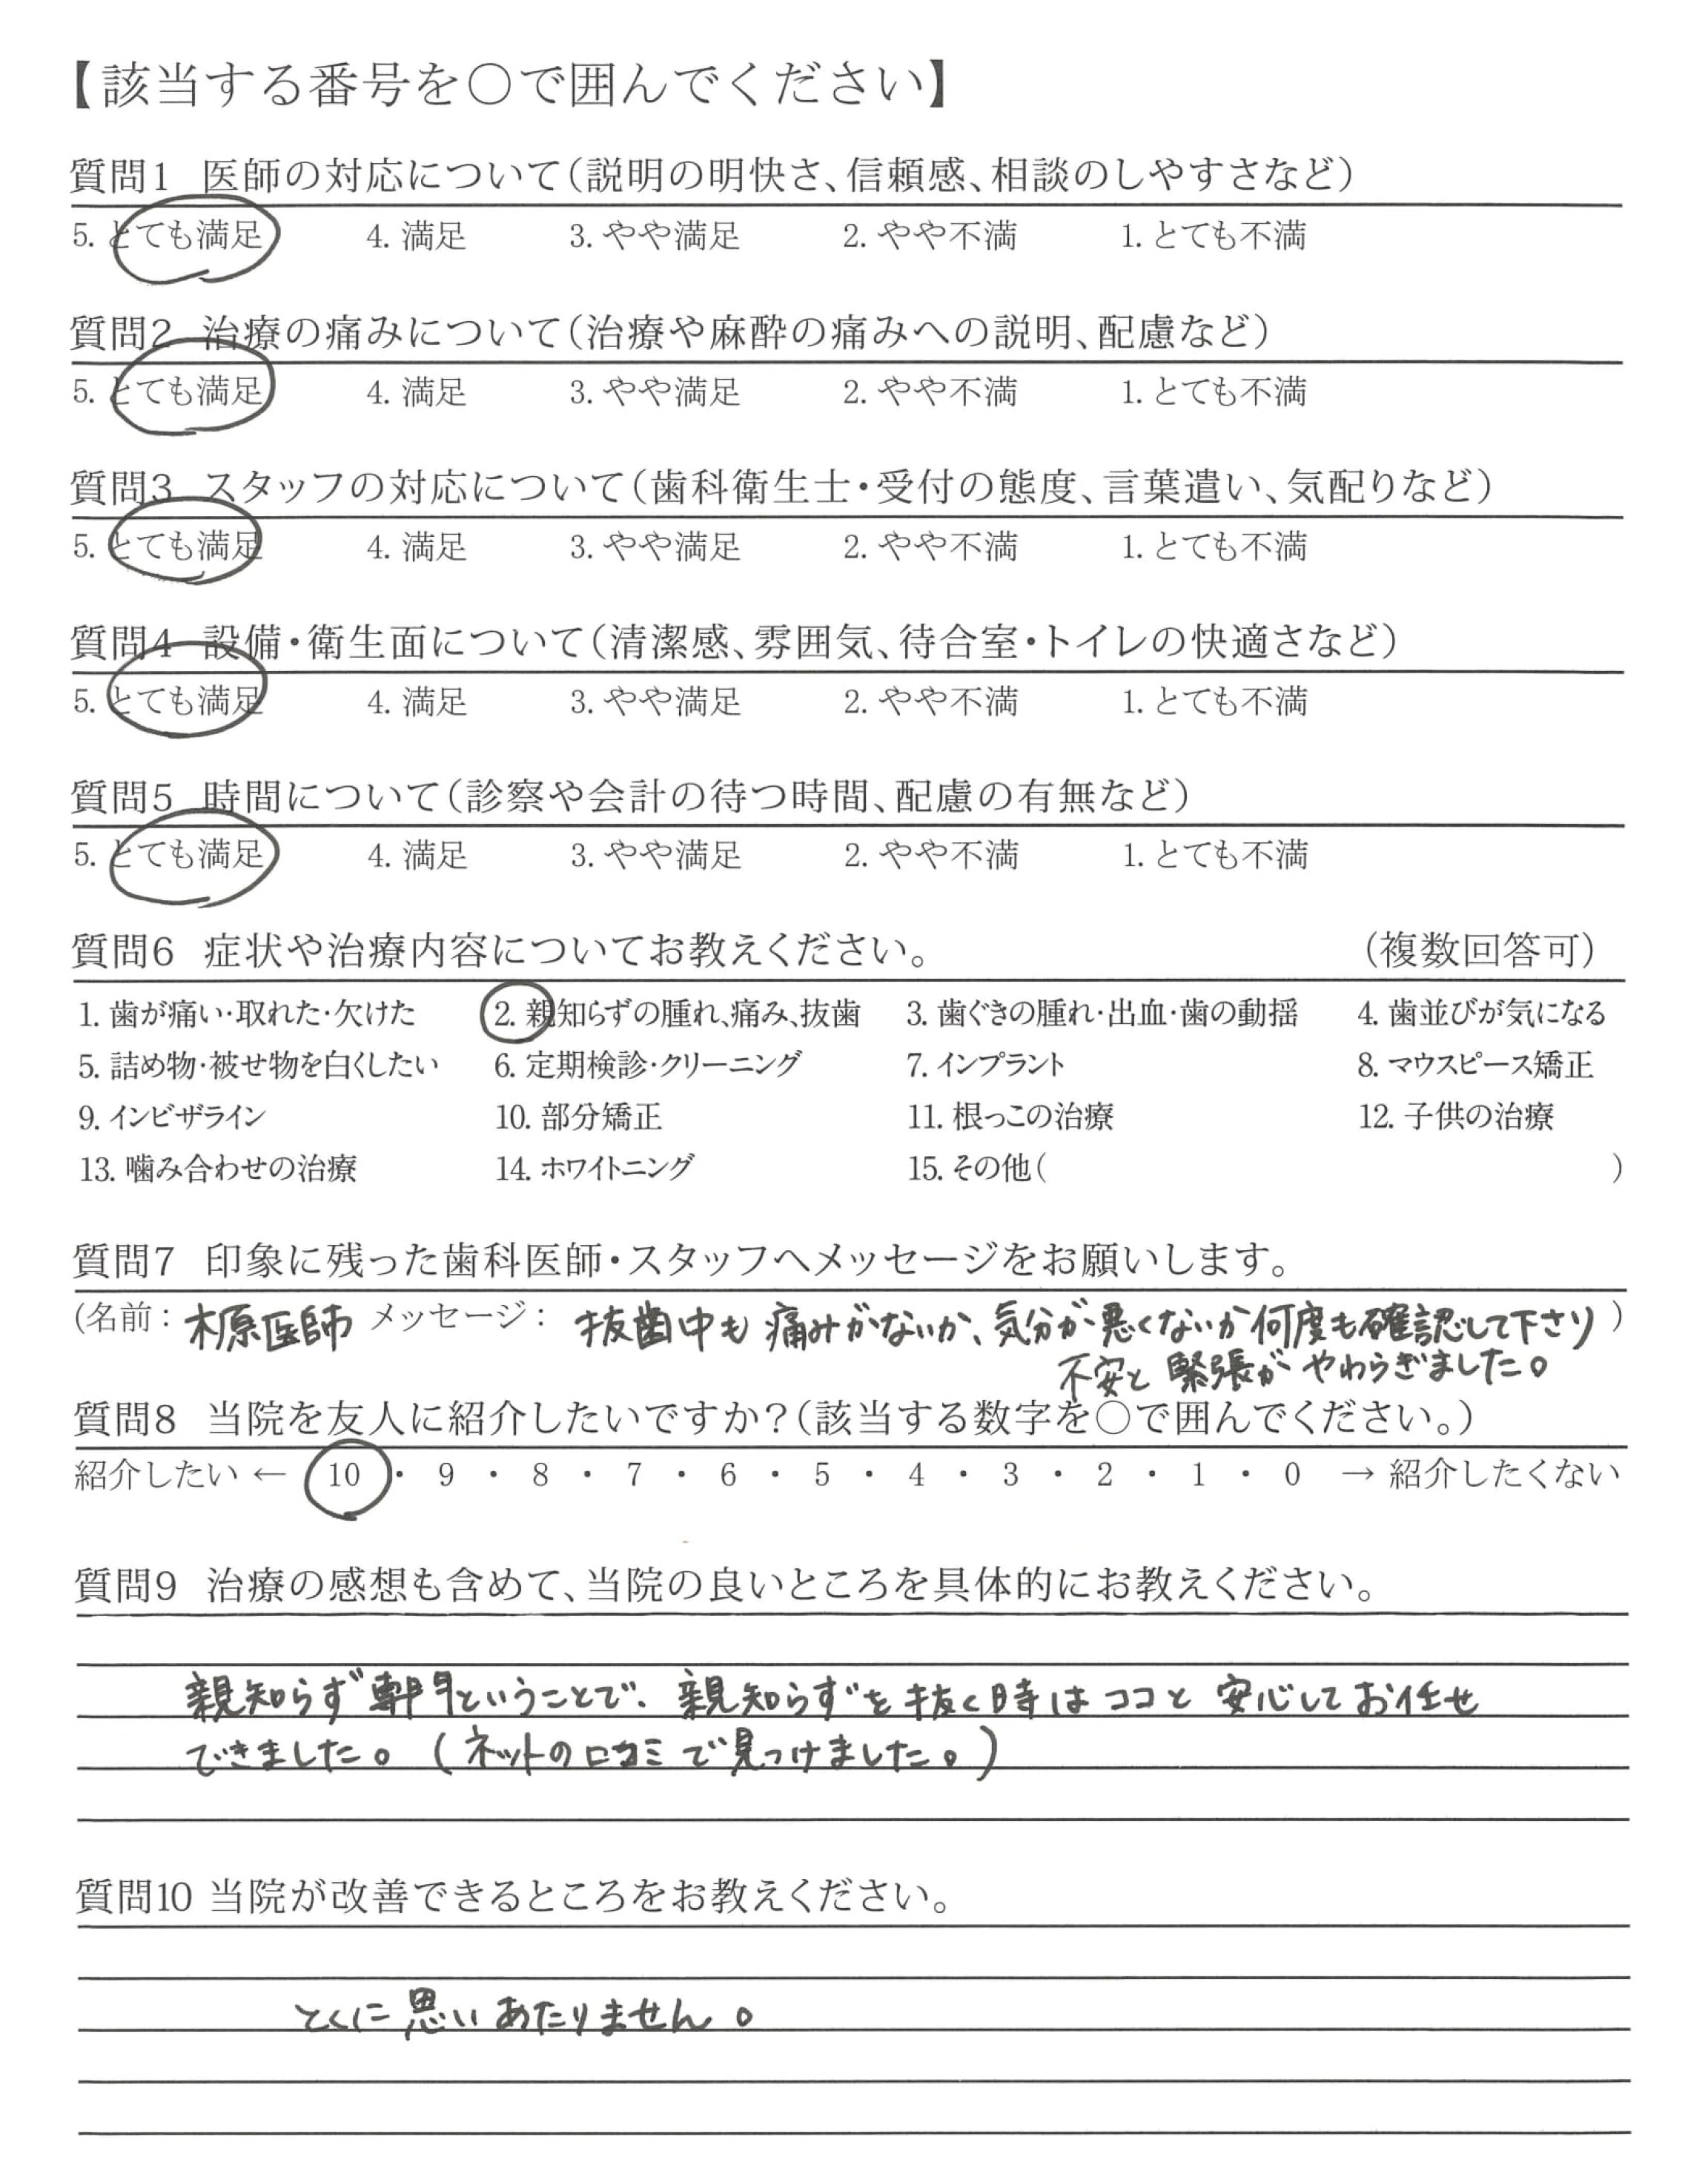 【該当する番号を○で囲んでください】
質問1 医師の対応について(説明の明快さ、信頼感、相談のしやすさなど)
5. とても満足 4. 満足 3. やや満足 2. やや不満 1. とても不満
質問2 治療の痛みについて(治療や麻酔の痛みへの説明、配慮など)
5. とても満足 4. 満足 3. やや満足 2. やや不満 1. とても不満
質問3 スタッフの対応について(歯科衛生士・受付の態度、言葉遣い、気配りなど)
5. とても満足 4. 満足 3. やや満足 2. やや不満 1. とても不満
質問4 設備・衛生面について(清潔感、雰囲気、待合室・トイレの快適さなど)
5. とても満足 4. 満足 3. やや満足 2. やや不満 1. とても不満
質問5 時間について(診察や会計の待つ時間、配慮の有無など)
5. とても満足 4. 満足 3. やや満足 2. やや不満 1. とても不満
質問6 症状や治療内容についてお教えください。 (複数回答可)
1. 歯が痛い・取れた・欠けた 2. 親知らずの腫れ、痛み、抜歯 3. 歯ぐきの腫れ・出血・歯の動揺 4. 歯並びが気になる
5. 詰め物・被せ物を白くしたい 6. 定期検診・クリーニング 7. インプラント 8. マウスピース矯正
9. インビザライン 10. 部分矯正 11. 根っこの治療 12. 子供の治療
13. 噛み合わせの治療 14. ホワイトニング 15. その他( )
質問7 印象に残った歯科医師・スタッフへメッセージをお願いします。
(名前: 医師 メッセージ: 抜歯中も痛みがないか、気分が悪くないか何度も確認して下さり )
不安と緊張がやわらぎました。
質問8 当院を友人に紹介したいですか?(該当する数字を○で囲んでください。)
紹介したい ← 10 ・ 9 ・ 8 ・ 7 ・ 6 ・ 5 ・ 4 ・ 3 ・ 2 ・ 1 ・ 0 → 紹介したくない
質問9 治療の感想も含めて、当院の良いところを具体的にお教えください。
親知らず専門ということで、親知らずを抜く時はココと安心してお任せ
できました。(ネットの口コミで見つけました。)
質問10 当院が改善できるところをお教えください。
とくに思いあたりません。